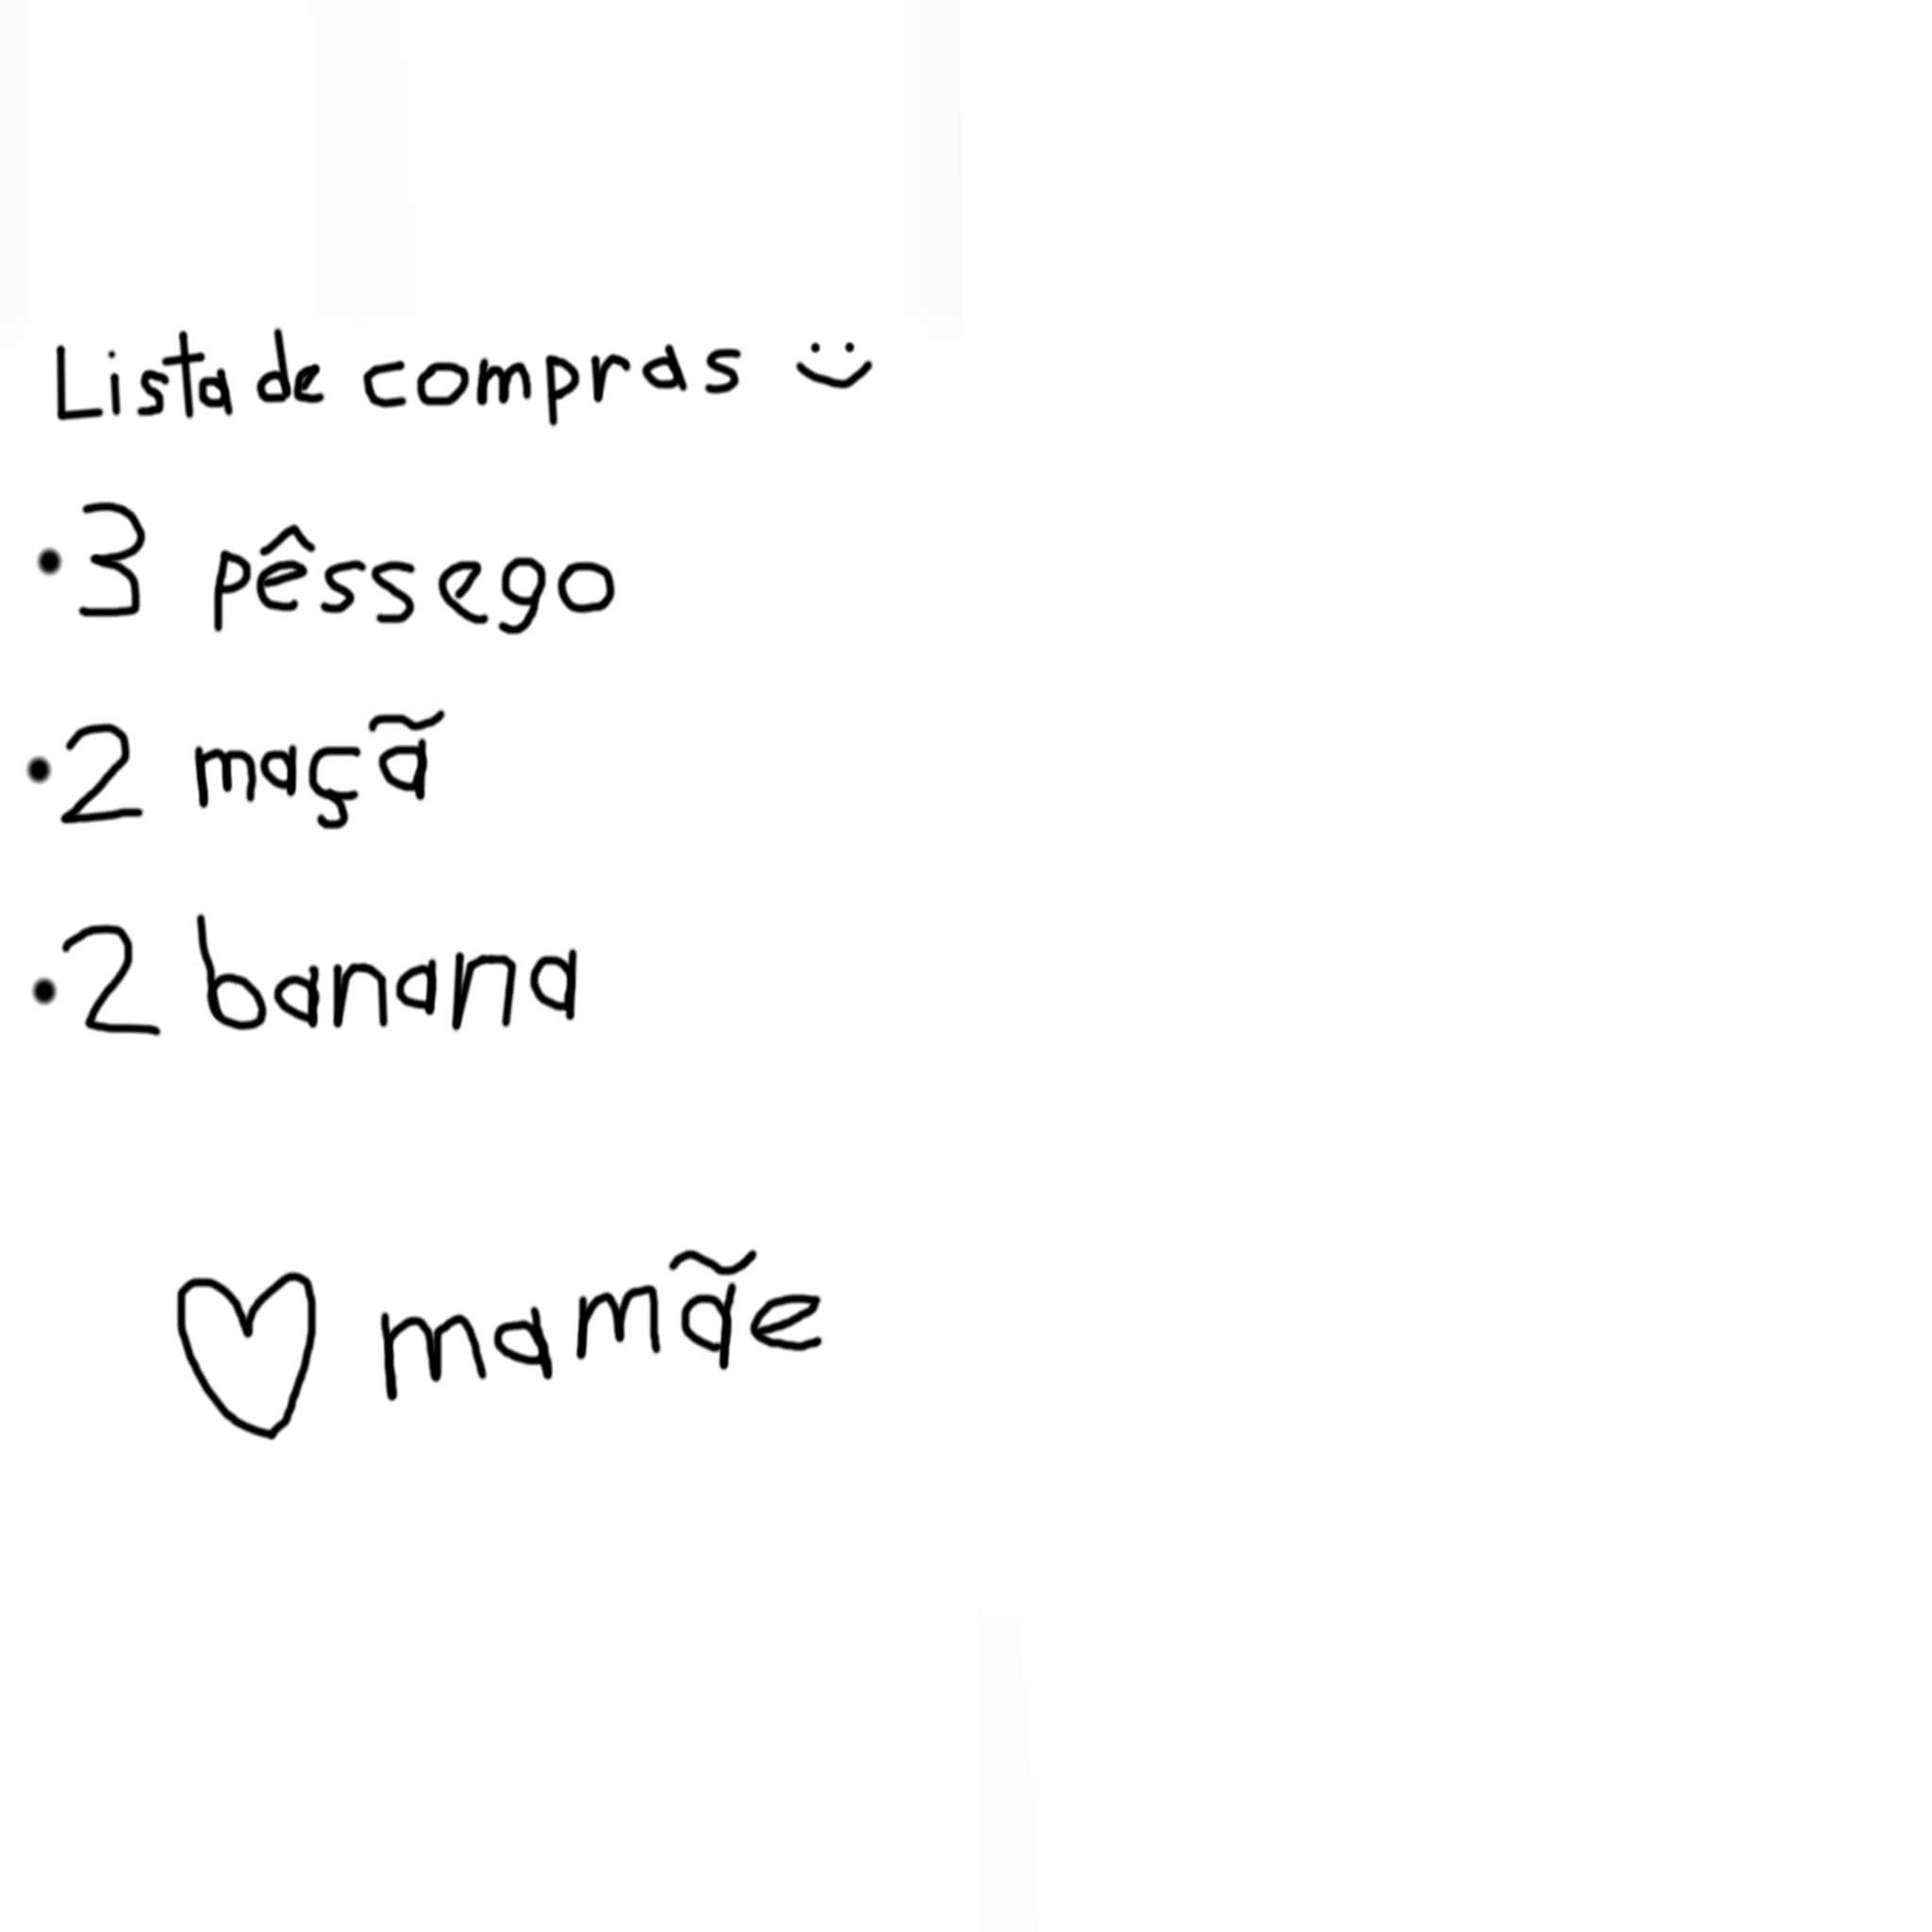 Lista de compras :)
•3 pêssego
•2 maçã
•2 banana
♡ mamãe